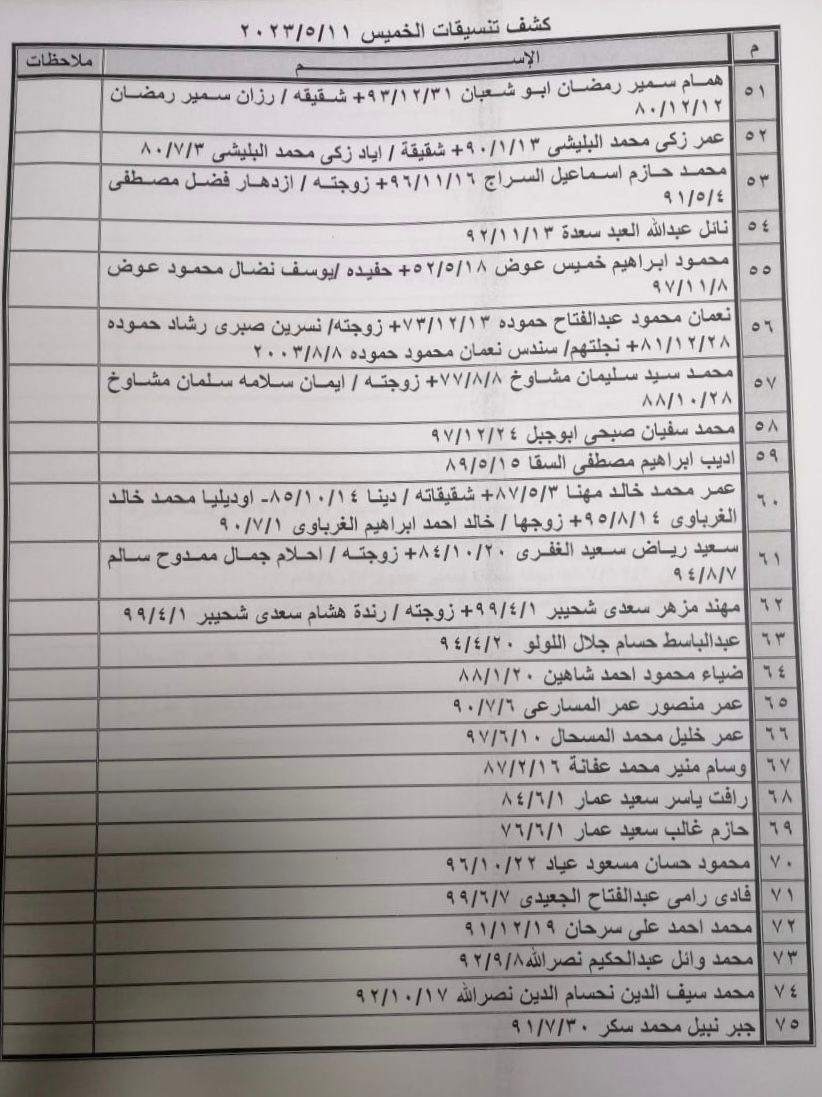 كشف تنسيقات الخميس ٢٠٢٣/٥/١١
م الإســـــــم ملاحظات
٥١ همام سمير رمضان ابو شعبان ٩٣/١٢/٣١+ شقيقه / رزان سمير رمضان
٨٠/١٢/١٢
٥٢ عمر زكى محمد البليشى ٩٠/١/١٣+ شقيقة / اياد زكى محمد البليشى ٨٠/٧/٣
٥٣ محمد حازم اسماعيل السراج ٩٦/١١/١٦+ زوجته / ازدهار فضل مصطفى
٩١/٥/٤
٥٤ نائل عبدالله العبد سعدة ٩٢/١١/١٣
٥٥ محمود ابراهيم خميس عوض ٥٢/٥/١٨+ حفيده /يوسف نضال محمود عوض
٩٧/١١/٨
٥٦ نعمان محمود عبدالفتاح حموده ٧٣/١٢/١٣+ زوجته/ نسرين صبرى رشاد حموده
٨١/١٢/٢٨+ نجلتهم/ سندس نعمان محمود حموده ٢٠٠٣/٨/٨
٥٧ محمد سيد سليمان مشاوخ ٧٧/٨/٨+ زوجته / ايمان سلامه سلمان مشاوخ
٨٨/١٠/٢٨
٥٨ محمد سفيان صبحى ابوجبل ٩٧/١٢/٢٤
٥٩ اديب ابراهيم مصطفى السقا ٨٩/٥/١٥
٦٠ عمر محمد خالد مهنا ٨٧/٥/٣+ شقيقاته / دينا ٨٥/١٠/١٤- اوديليا محمد خالد
الغرباوى ٩٥/٨/١٤+ زوجها / خالد احمد ابراهيم الغرباوى ٩٠/٧/١
٦١ سعيد رياض سعيد الغفرى ٨٤/١٠/٢٠+ زوجته / احلام جمال ممدوح سالم
٩٤/٨/٧
٦٢ مهند مزهر سعدى شحيبر ٩٩/٤/١+ زوجته / رندة هشام سعدى شحيبر ٩٩/٤/١
٦٣ عبدالباسط حسام جلال اللولو ٩٤/٤/٢٠
٦٤ ضياء محمود احمد شاهين ٨٨/١/٢٠
٦٥ عمر منصور عمر المسارعى ٩٠/٧/٦
٦٦ عمر خليل محمد المسحال ٩٧/٦/١٠
٦٧ وسام منير محمد عفانة ٨٧/٢/١٦
٦٨ رافت ياسر سعيد عمار ٨٤/٦/١
٦٩ حازم غالب سعيد عمار ٧٦/٦/١
٧٠ محمود حسان مسعود عياد ٩٦/١٠/٢٢
٧١ فادى رامى عبدالفتاح الجعيدى ٩٩/٦/٧
٧٢ محمد احمد على سرحان ٩١/١٢/١٩
٧٣ محمد وائل عبدالحكيم نصرالله٩٢/٩/٨
٧٤ محمد سيف الدين نحسام الدين نصرالله ٩٢/١٠/١٧
٧٥ جبر نبيل محمد سكر ٩١/٧/٣٠